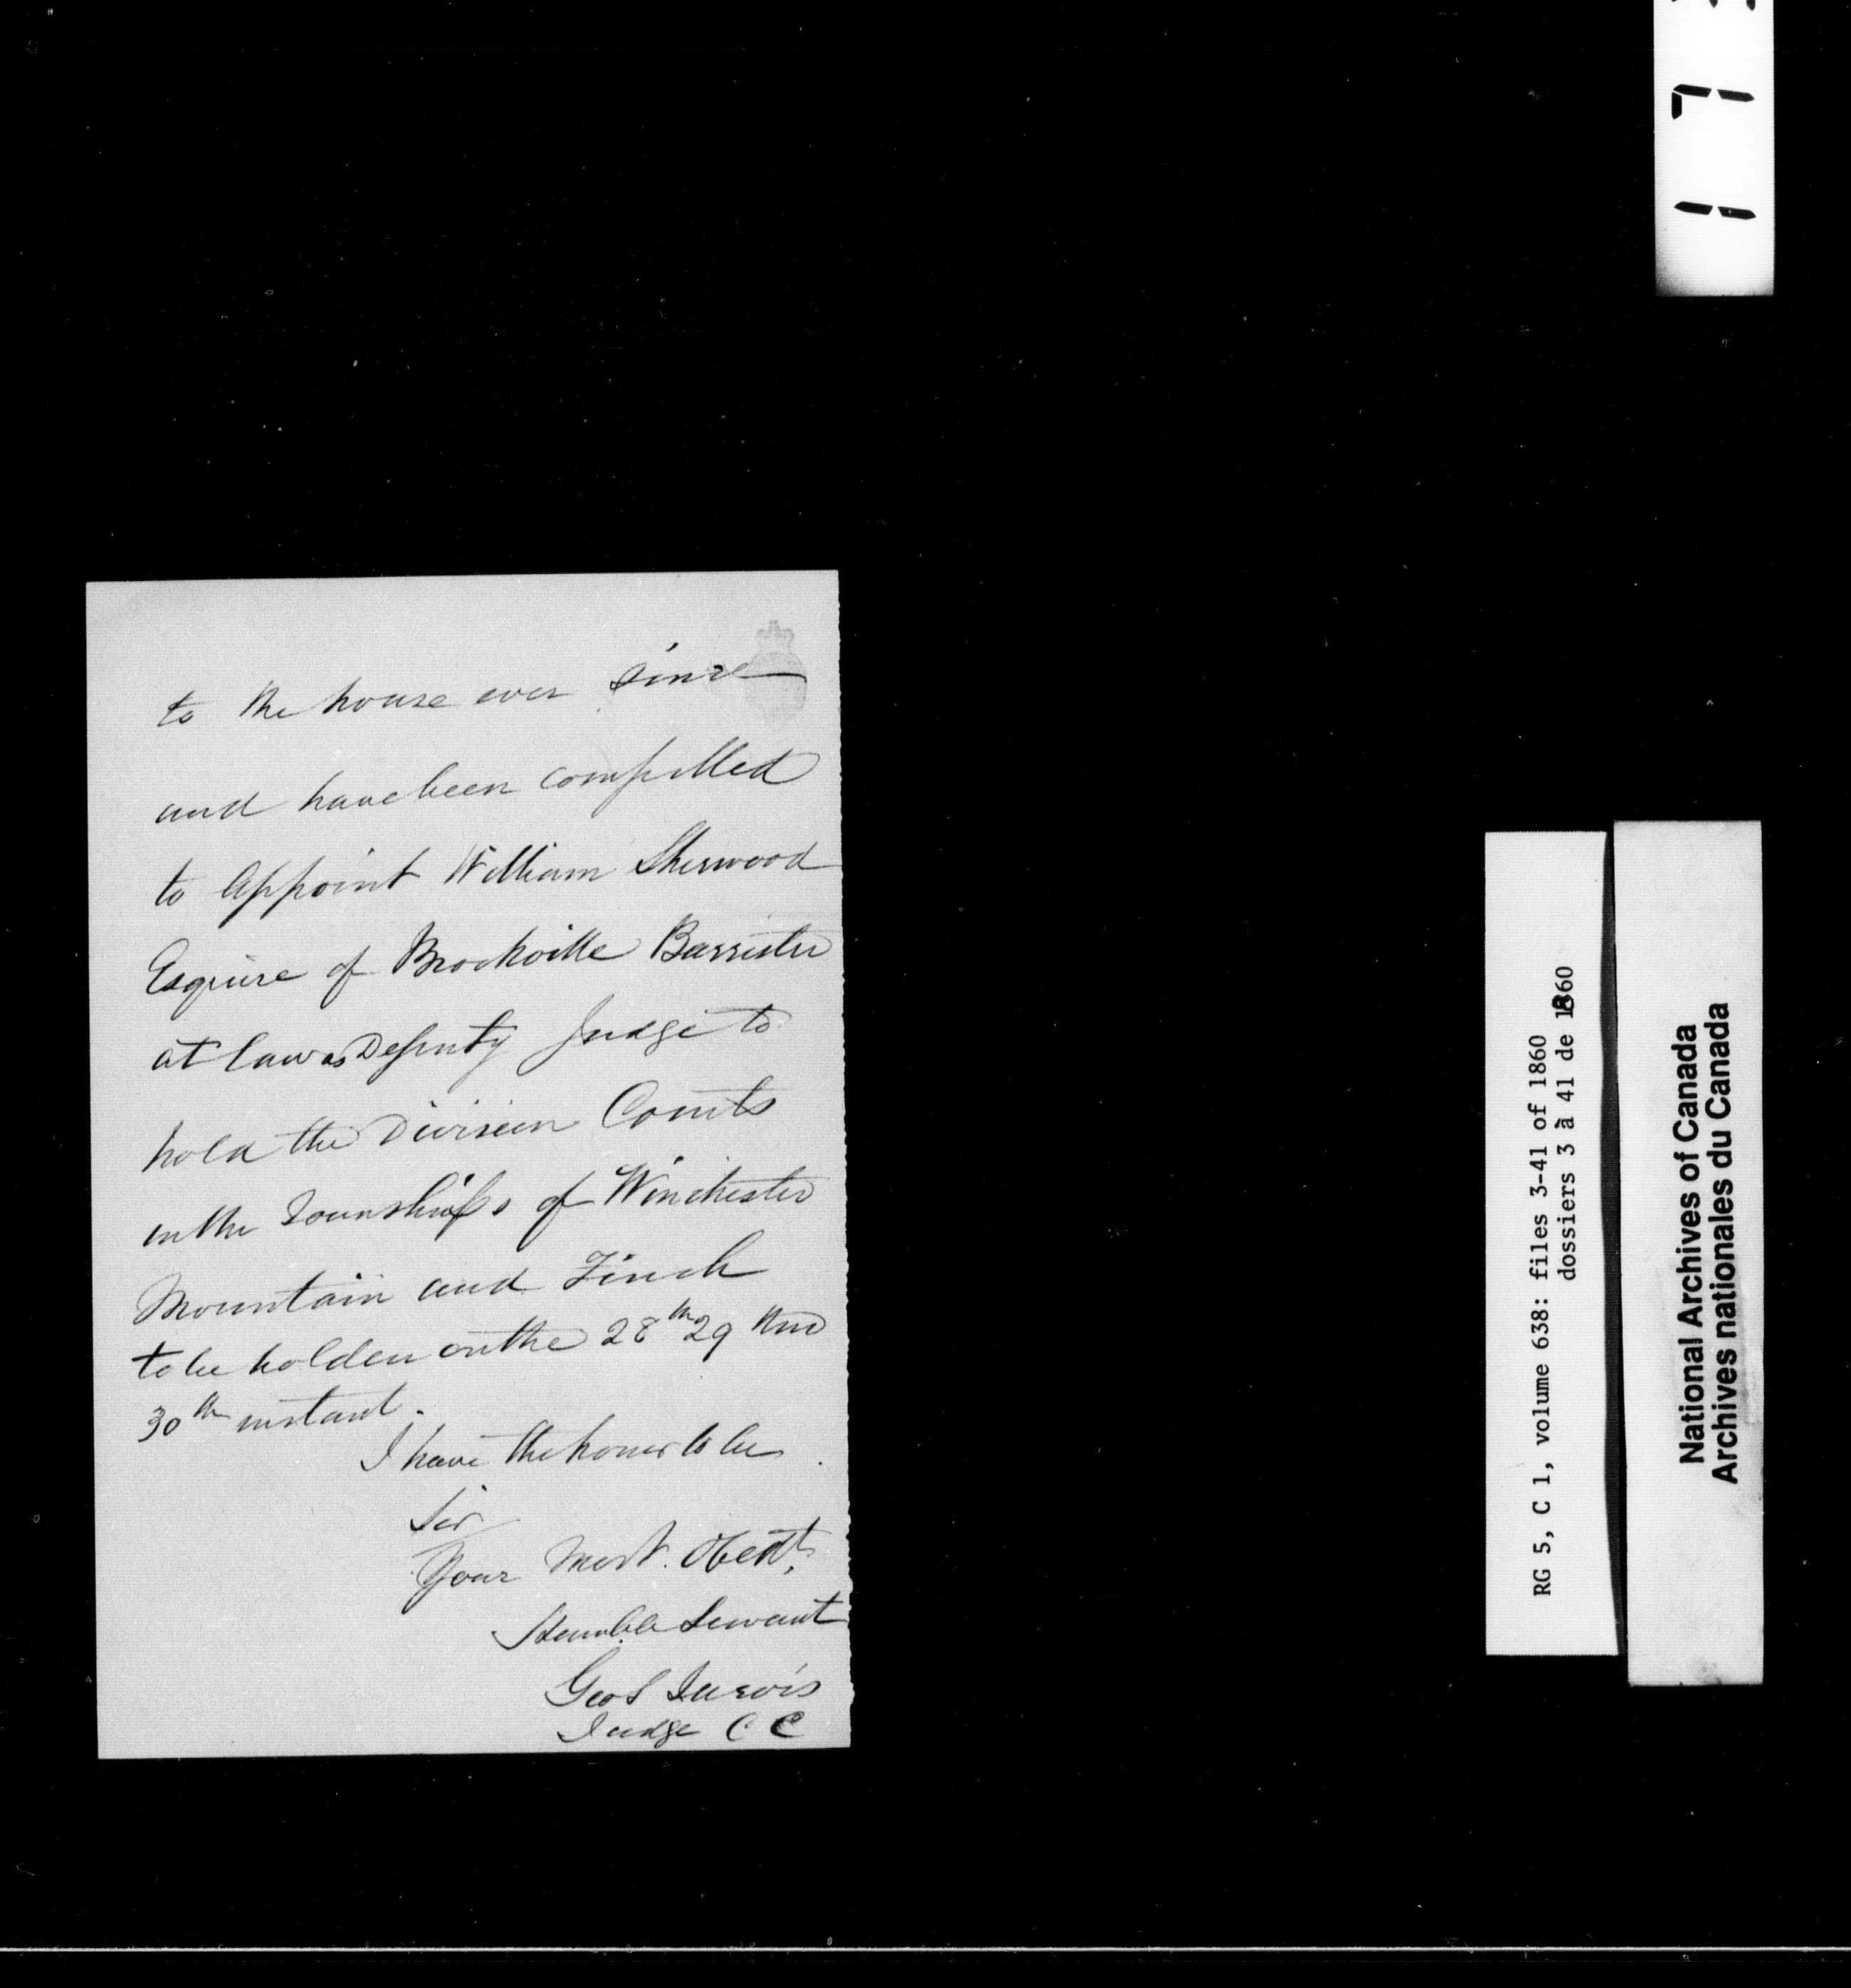 to the house ever since
and have been compelled
to appoint William Sherwood
Esquire of Brockville Barrister
at law as Deputy Judge to
hold the Division Courts
in the Townships of Winchester
Mountain and Finch
to be holden on the 28th 29 and
30th instant.
I have the honor to be
Sir
Your Most. Obedt,
Humble Servant
Geo S Jarvis
Judge C C
RG 5, C 1, volume 638: files 3-41 of 1860
dossiers 3 à 41 de 1860
National Archives of Canada
Archives nationales du Canada